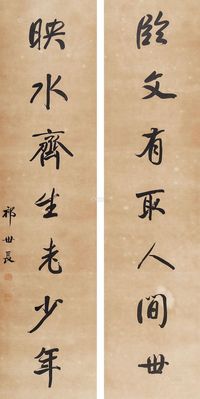 臨文有取人間世
映水齊生老少年
祁世長